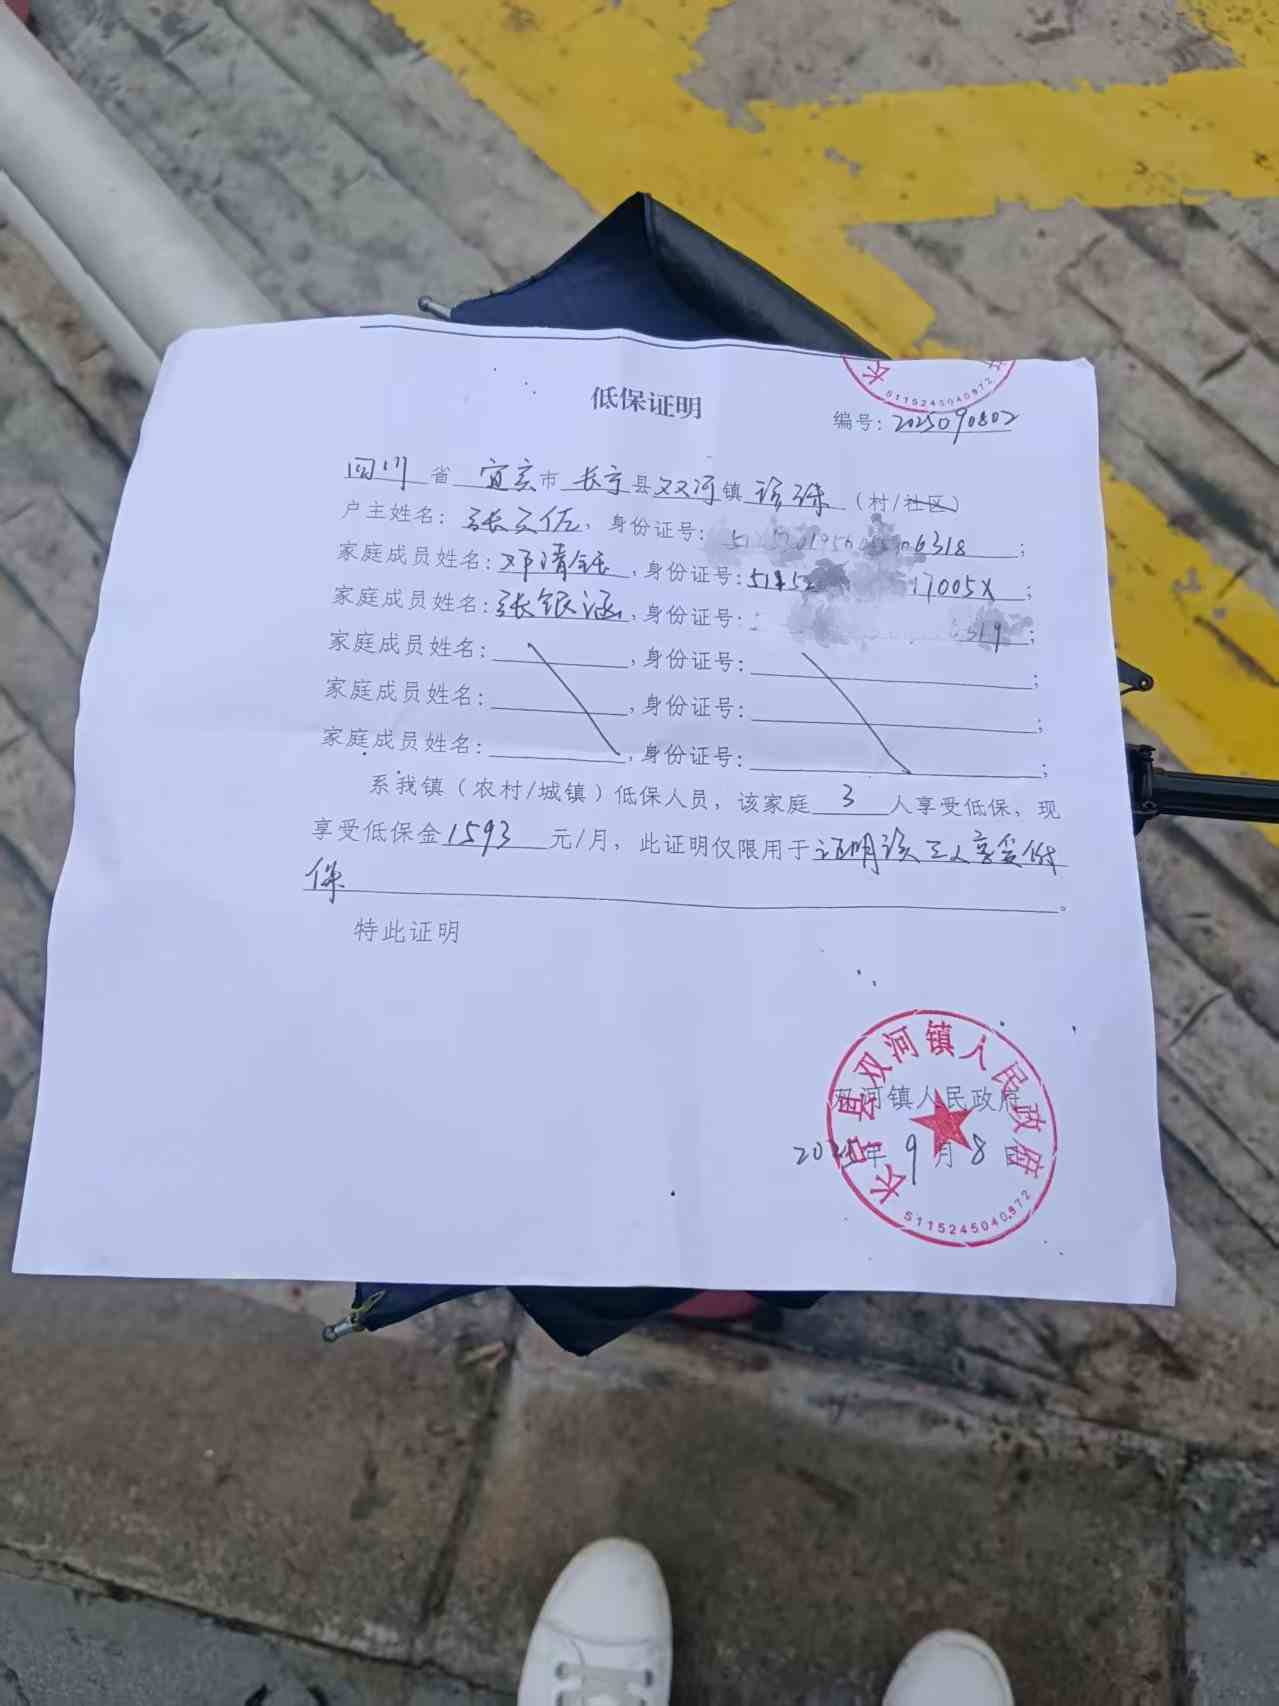 低保证明
5115245040972
编号：2025090802
四川省宜宾市长宁县双河镇珍珠（村/社区）
户主姓名：张云佐，身份证号：6318；
家庭成员姓名：邓清钰，身份证号：17005X；
家庭成员姓名：张银涵，身份证号：；
家庭成员姓名：，身份证号：；
家庭成员姓名：，身份证号：；
家庭成员姓名：，身份证号：；
系我镇（农村/城镇）低保人员，该家庭3人享受低保，现
享受低保金1593元/月，此证明仅限用于证明该三人享受低
保。
特此证明
长宁县双河镇人民政府
双河镇人民政府
2025年9月8日
5115245040972